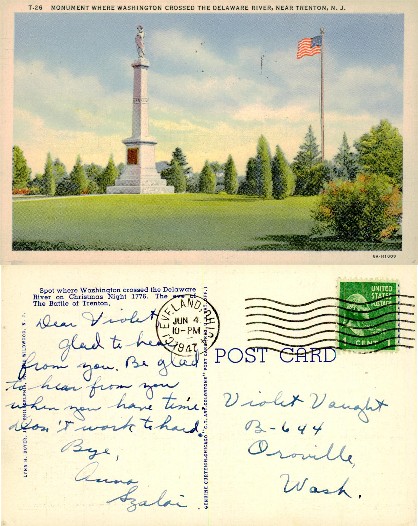 T-26 MONUMENT WHERE WASHINGTON CROSSED THE DELAWARE RIVER, NEAR TRENTON, N. J.
6A-H1000
Spot where Washington crossed the Delaware
River on Christmas Night 1776. The eve of
The Battle of Trenton.
Dear Violet
glad to hear
from you. Be glad
to hear from you
when you have time.
Don't work to hard.
Bye,
Anna
Szalai
CLEVELAND, OHIO
JUN 4
10-PM
1947
UNITED
STATES
POSTAGE
1
CENT
POST CARD
Violet Vaught
B-644
Oroville,
Wash.